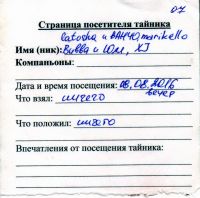 07
Страница посетителя тайника
latosha и ВАНЧО, marikello
Имя (ник): Bubba и Юля, XJ
Компаньоны:
Дата и время посещения: 08.08.2016
вечер
Что взял: ничего
Что положил: ничего
Впечатления от посещения тайника: